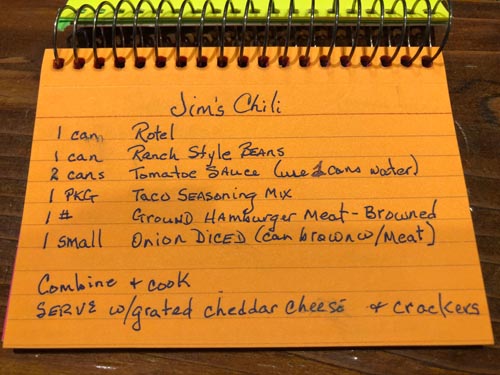 Jim's Chili
1 can Rotel
1 can Ranch Style BEANS
2 cans Tomatoe SAUCE (use cans water)
1 PKG TACO SEASONING MIX
1 # GROUND HAMburger MEAT - BROWNED
1 small ONION DICED (can brown w/MEAT)
Combine + cook
SERVE w/grated cheddar cheese + crackers